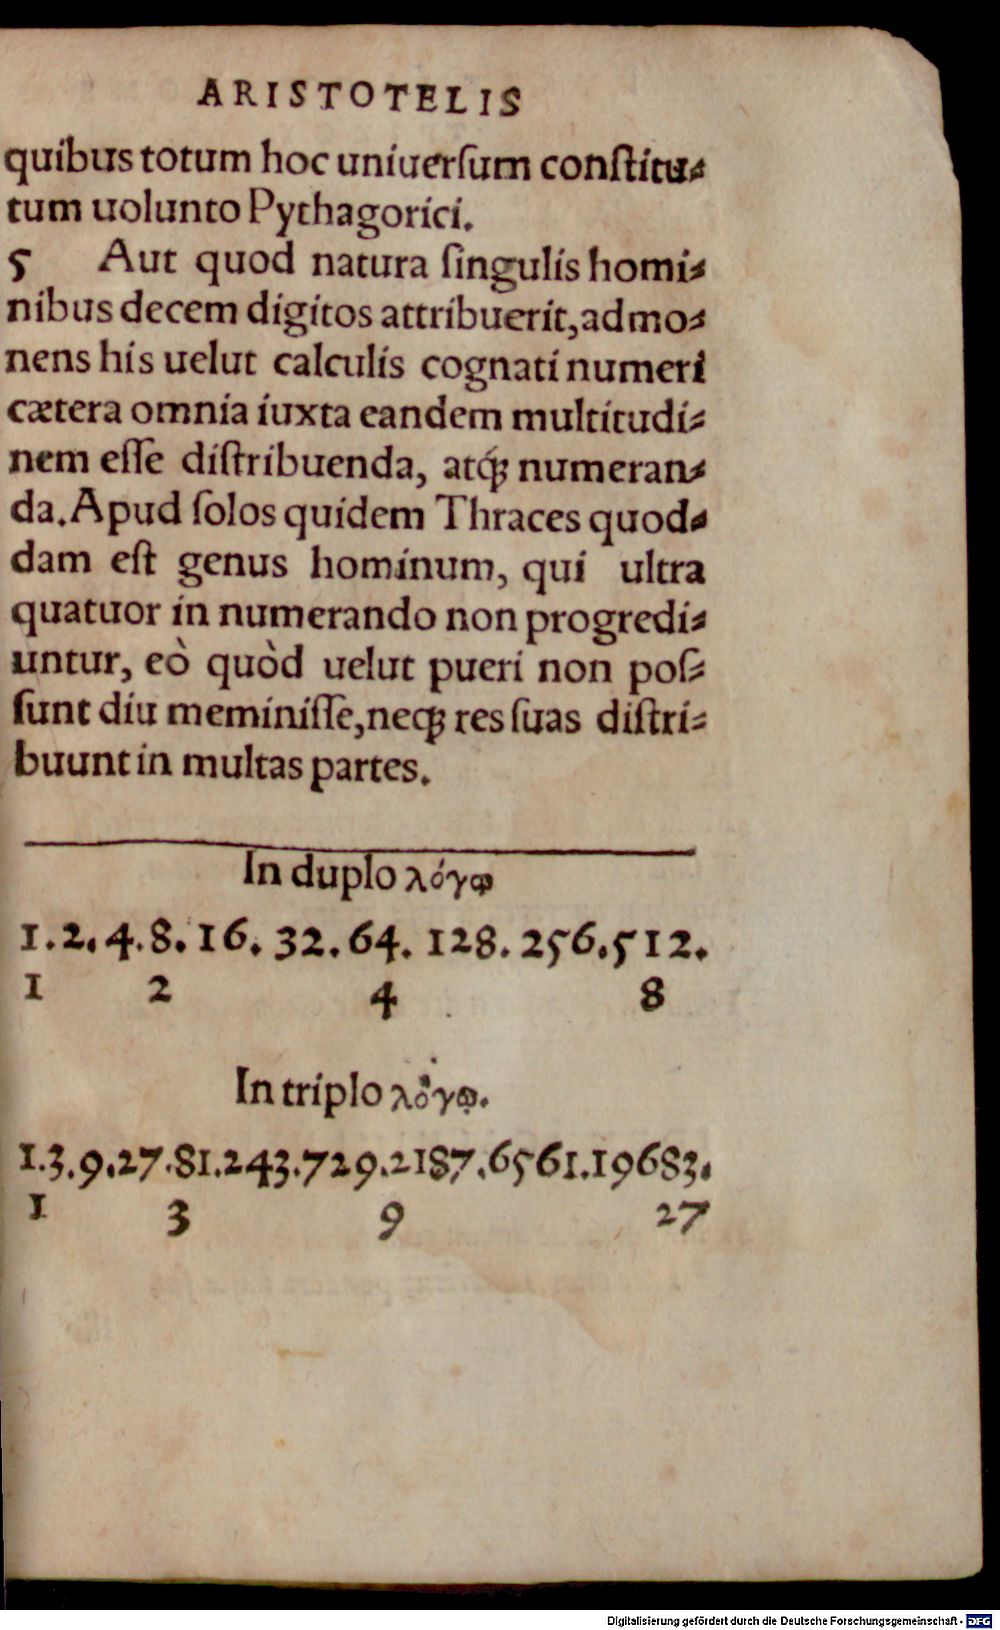 ARISTOTELIS
quibus totum hoc uniuerſum conſtitu⸗
tum uolunto Pythagorici.
5 Aut quod natura ſingulis homi⸗
nibus decem digitos attribuerit, admo⸗
nens his uelut calculis cognati numeri
cætera omnia iuxta eandem multitudi⸗
nem eſſe diſtribuenda, atq́; numeran⸗
da. Apud ſolos quidem Thraces quod⸗
dam eſt genus hominum, qui ultra
quatuor in numerando non progredi⸗
untur, eò quòd uelut pueri non poſ⸗
ſunt diu meminiſſe, neq; res ſuas diſtri⸗
buunt in multas partes.
In duplo λόγῳ
1. 2. 4. 8. 16. 32. 64. 128. 256. 512.
1 2 4 8
In triplo λόγῳ.
1. 3. 9. 27. 81. 243. 729. 2187. 6561. 19683.
1 3 9 27
Digitalisierung gefördert durch die Deutsche Forschungsgemeinschaft - DFG